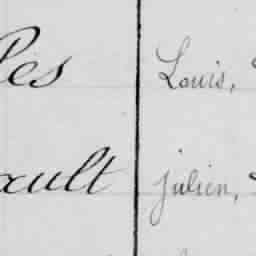 les Louis,
ault julien,